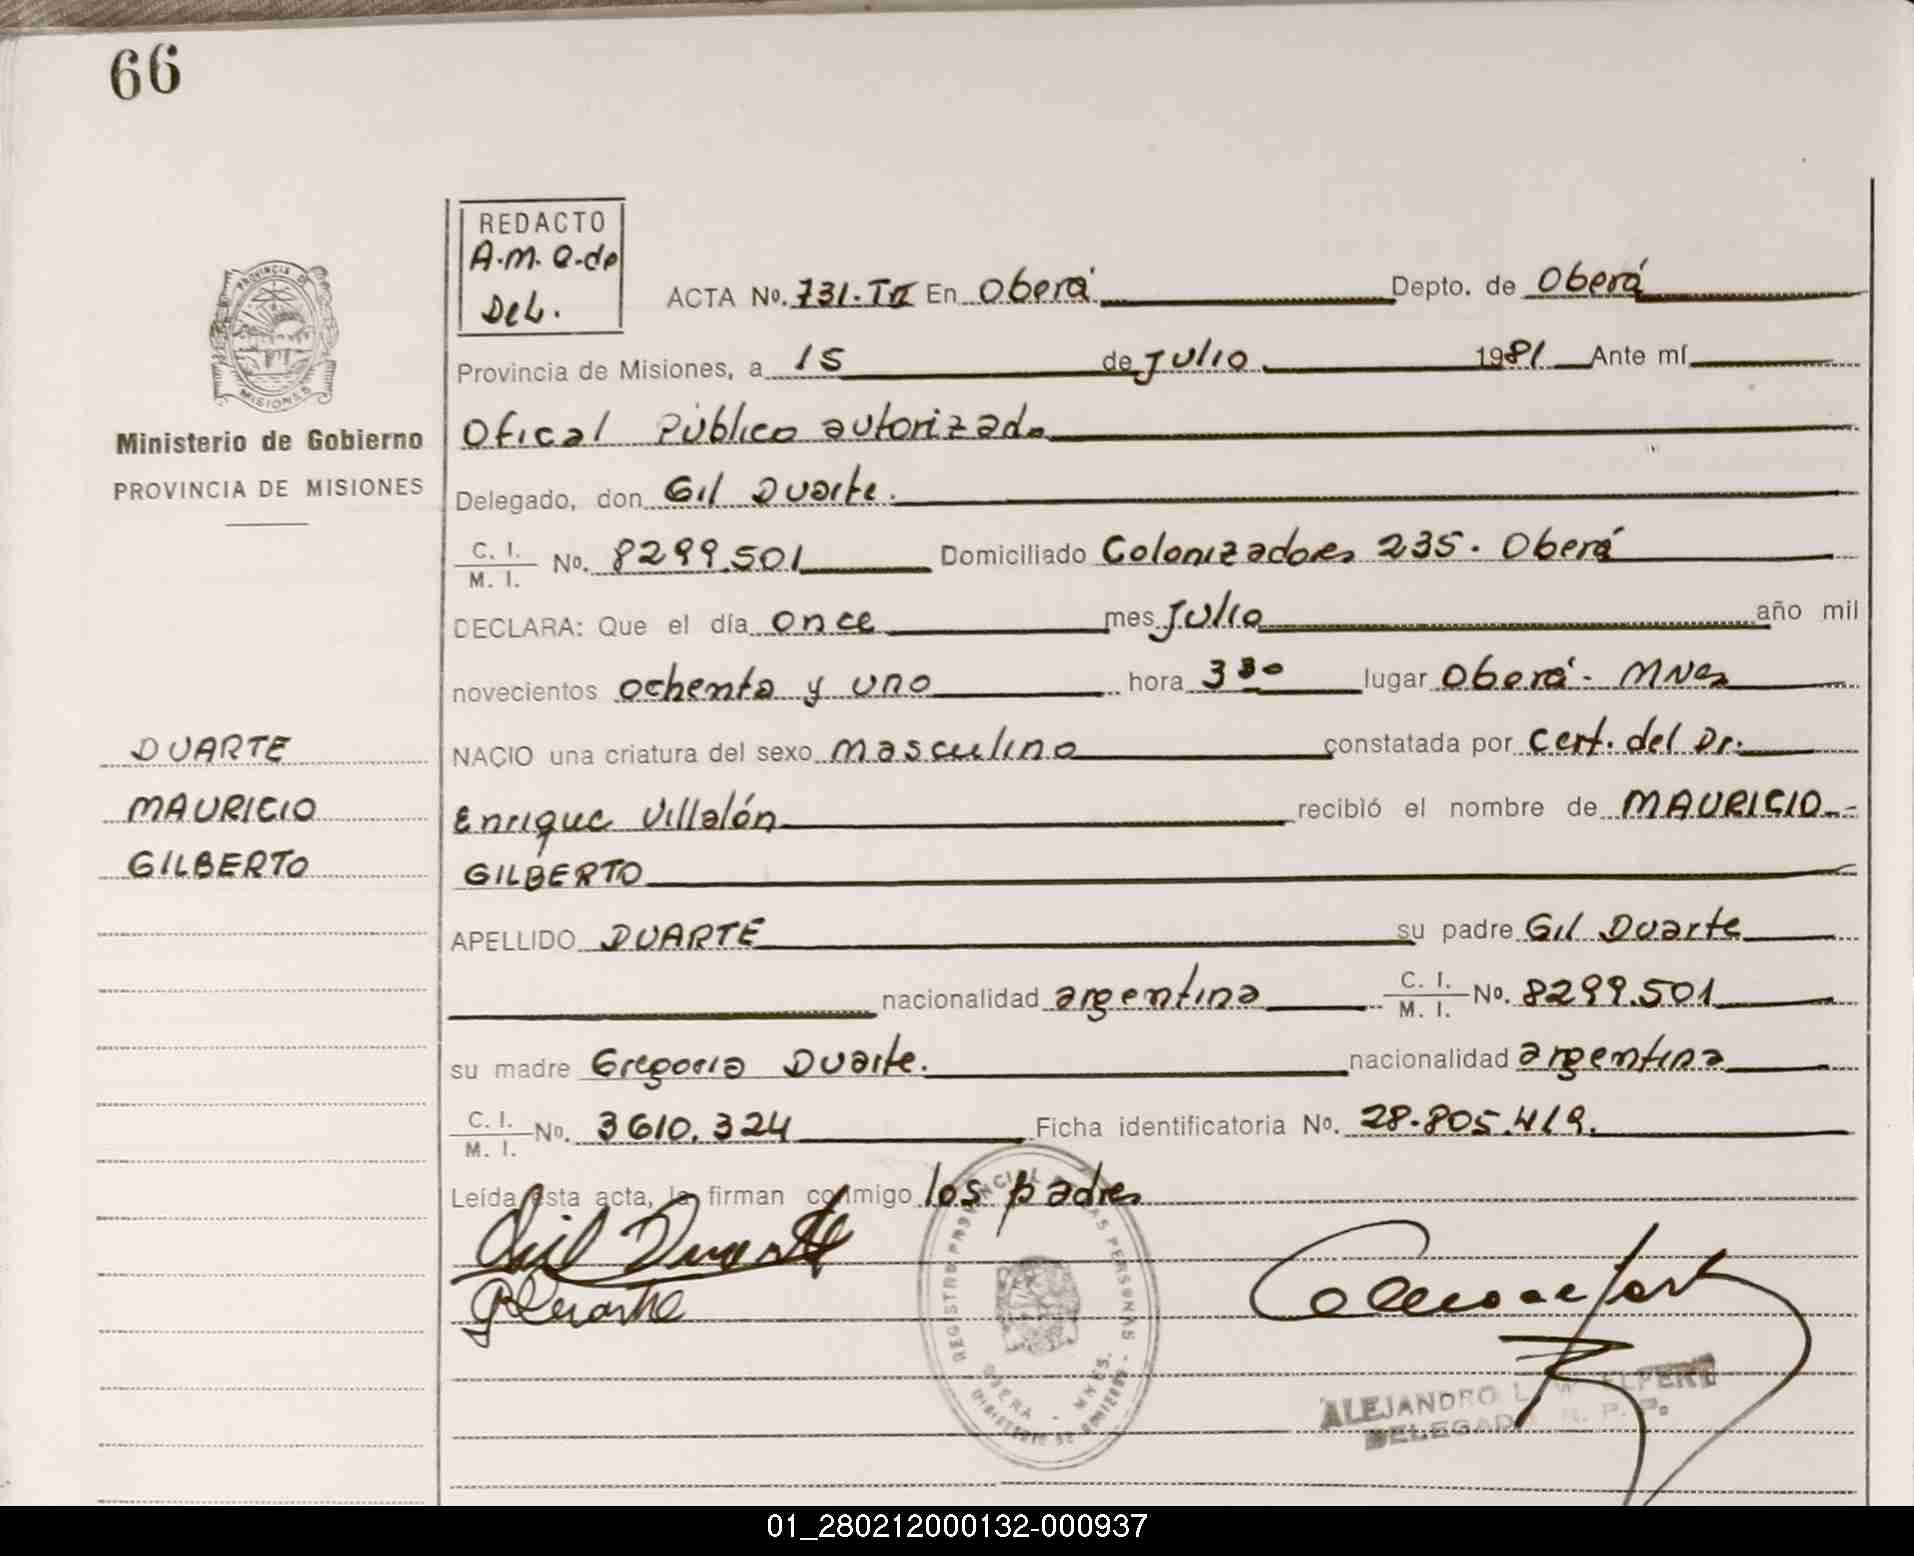 66
REDACTO
A.M.Q.de
Del.
ACTA No. 731.TII En Oberá Depto. de Oberá
Provincia de Misiones, a 15 de Julio 1981 Ante mí
Ofical Público autorizado
Delegado, don Gil Duarte.
C. I.
M. I. No. 8299.501 Domiciliado Colonizadores 235. Oberá
DECLARA: Que el día once mes Julio año mil
novecientos ochenta y uno hora 3 30 lugar Oberá - MNes
NACIO una criatura del sexo masculino constatada por Cert. del Dr.
Enrique Villalón recibió el nombre de MAURICIO
GILBERTO
APELLIDO DUARTE su padre Gil Duarte
nacionalidad argentina C. I. M. I. No. 8299.501
su madre Gregoria Duarte. nacionalidad argentina
C. I. M. I. No. 3610.324 Ficha identificatoria No. 28.805.419.
Leída esta acta, la firman conmigo los padres
Gil Duarte
GDuarte
PROVINCIA DE
MISIONES
Ministerio de Gobierno
PROVINCIA DE MISIONES
DUARTE
MAURICIO
GILBERTO
REGISTRO PROVINCIAL DE LAS PERSONAS
OBERA - MNES.
MINISTERIO DE GOBIERNO
ALEJANDRO L.
DELEGADO R. P. P.
01_280212000132-000937